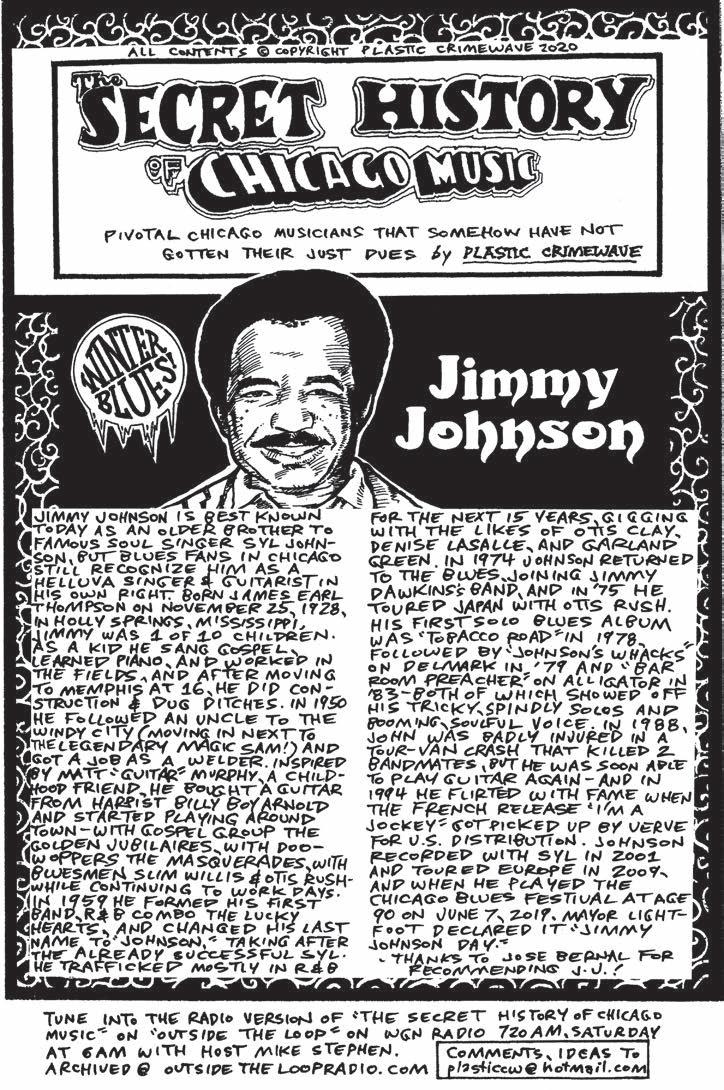 ALL CONTENTS © COPYRIGHT PLASTIC CRIMEWAVE 2020
The
SECRET HISTORY
OF CHICAGO MUSIC
PIVOTAL CHICAGO MUSICIANS THAT SOMEHOW HAVE NOT
GOTTEN THEIR JUST DUES by PLASTIC CRIMEWAVE
WINTER
BLUES!
Jimmy
Johnson
JIMMY JOHNSON IS BEST KNOWN
TODAY AS AN OLDER BROTHER TO
FAMOUS SOUL SINGER SYL JOHN-
SON, BUT BLUES FANS IN CHICAGO
STILL RECOGNIZE HIM AS A
HELLUVA SINGER & GUITARIST IN
HIS OWN RIGHT. BORN JAMES EARL
THOMPSON ON NOVEMBER 25, 1928,
IN HOLLY SPRINGS, MISSISSIPPI,
JIMMY WAS 1 OF 10 CHILDREN.
AS A KID HE SANG GOSPEL,
LEARNED PIANO, AND WORKED IN
THE FIELDS, AND AFTER MOVING
TO MEMPHIS AT 16, HE DID CON-
STRUCTION & DUG DITCHES. IN 1950
HE FOLLOWED AN UNCLE TO THE
WINDY CITY (MOVING IN NEXT TO
THE LEGENDARY MAGIC SAM!) AND
GOT A JOB AS A WELDER. INSPIRED
BY MATT "GUITAR" MURPHY, A CHILD-
HOOD FRIEND, HE BOUGHT A GUITAR
FROM HARPIST BILLY BOY ARNOLD
AND STARTED PLAYING AROUND
TOWN-WITH GOSPEL GROUP THE
GOLDEN JUBILAIRES, WITH DOO-
WOPPERS THE MASQUERADES, WITH
BLUESMEN SLIM WILLIS & OTIS RUSH-
WHILE CONTINUING TO WORK DAYS.
IN 1959 HE FORMED HIS FIRST
BAND, R&B COMBO THE LUCKY
HEARTS, AND CHANGED HIS LAST
NAME TO "JOHNSON," TAKING AFTER
THE ALREADY SUCCESSFUL SYL.
HE TRAFFICKED MOSTLY IN R&B
FOR THE NEXT 15 YEARS, GIGGING
WITH THE LIKES OF OTIS CLAY,
DENISE LASALLE, AND GARLAND
GREEN. IN 1974 JOHNSON RETURNED
TO THE BLUES, JOINING JIMMY
DAWKINS'S BAND, AND IN '75 HE
TOURED JAPAN WITH OTIS RUSH.
HIS FIRST SOLO BLUES ALBUM
WAS "TOBACCO ROAD" IN 1978,
FOLLOWED BY "JOHNSON'S WHACKS"
ON DELMARK IN '79 AND "BAR
ROOM PREACHER" ON ALLIGATOR IN
'83-BOTH OF WHICH SHOWED OFF
HIS TRICKY, SPINDLY SOLOS AND
BOOMING, SOULFUL VOICE. IN 1988,
JOHN WAS BADLY INJURED IN A
TOUR-VAN CRASH THAT KILLED 2
BANDMATES, BUT HE WAS SOON ABLE
TO PLAY GUITAR AGAIN-AND IN
1994 HE FLIRTED WITH FAME WHEN
THE FRENCH RELEASE "I'M A
JOCKEY" GOT PICKED UP BY VERVE
FOR U.S. DISTRIBUTION. JOHNSON
RECORDED WITH SYL IN 2001
AND TOURED EUROPE IN 2009,
AND WHEN HE PLAYED THE
CHICAGO BLUES FESTIVAL AT AGE
90 ON JUNE 7, 2019, MAYOR LIGHT-
FOOT DECLARED IT "JIMMY
JOHNSON DAY."
-THANKS TO JOSE BERNAL FOR
RECOMMENDING J.J.!
TUNE INTO THE RADIO VERSION OF "THE SECRET HISTORY OF CHICAGO
MUSIC" ON "OUTSIDE THE LOOP" ON WGN RADIO 720 AM, SATURDAY
AT 6AM WITH HOST MIKE STEPHEN.
ARCHIVED @ OUTSIDE THE LOOPRADIO.COM
COMMENTS, IDEAS TO
plasticcw@hotmail.com